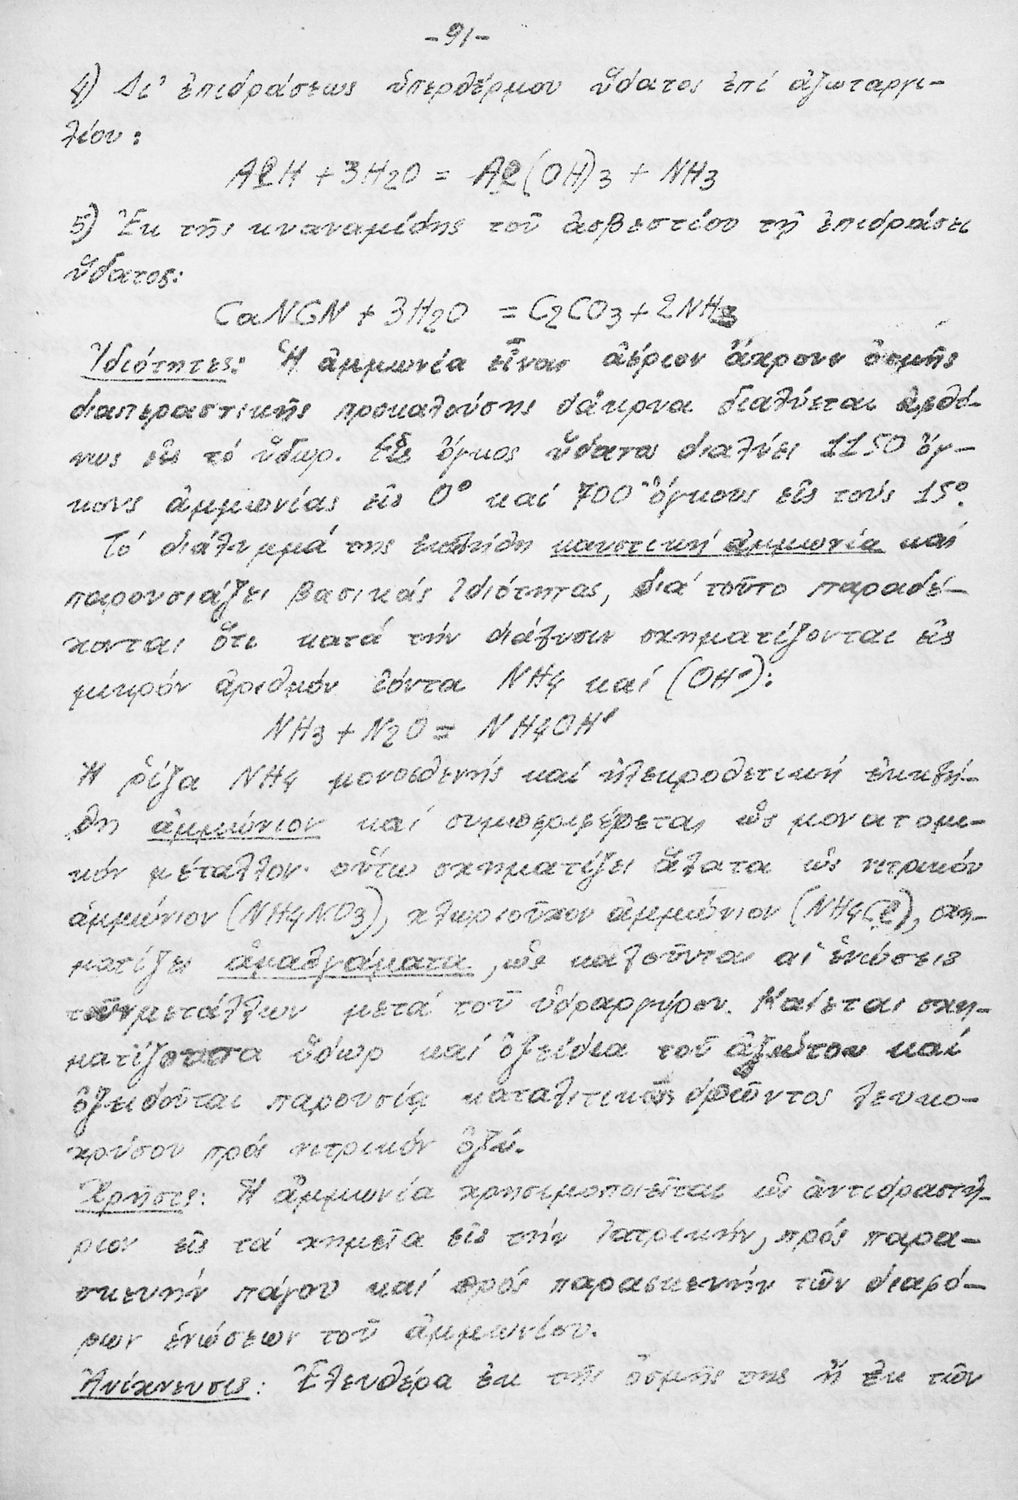 -91-
4) Δι' ἐπιδράσεως ὑπερθέρμου ὕδατος ἐπί ἀζωταργι-
λίου:
AlH + 3H2O = Al(OH)3 + NH3
5) Ἐκ τῆς κυαναμίδης τοῦ ἀσβεστίου τῇ ἐπιδράσει
ὕδατος:
CaNGN + 3H2O = C2CO3 + 2NH3
Ἰδιότητες: Ἡ ἀμμωνία εἶναι ἀέριον ἄχρουν ὀσμῆς
διαπεραστικῆς προκαλούσης δάκρυα διαλύεται ἀφθό-
νως εἰς τό ὕδωρ. Εἷς ὄγκος ὕδατος διαλύει 1150 ὄγ-
κους ἀμμωνίας εἰς 0° καί 700 ὄγκους εἰς τούς 15°.
Τό διάλυμμά της ἐκλήθη καυστική ἀμμωνία καί
παρουσιάζει βασικάς ἰδιότητας, διά τοῦτο παραδέ-
χονται ὅτι κατά τήν διάλυσιν σχηματίζονται εἰς
μικρόν ἀριθμόν ἰόντα NH4 καί (OH'):
NH3 + N2O = NH4OH'
Ἡ ρίζα NH4 μονοσθενής καί ἠλεκροθετική ἐκλή-
θη ἀμμώνιον καί συμπεριφέρεται ὡς μονατομι-
κόν μέταλλον· οὕτω σχηματίζει ἅλατα ὡς νιτρικόν
ἀμμώνιον (NH4NO3), χλωριοῦχον ἀμμώνιον (NH4Cl), σχη-
ματίζει ἀμαλγάματα, ὡς καλοῦνται αἱ ἑνώσεις
τῶν μετάλλων μετά τοῦ ὑδραργύρου. Καίεται σχη-
ματίζουσα ὕδωρ καί ὀξείδια τοῦ ἀζώτου καί
ὀξειδοῦται παρουσίᾳ καταλιτικῶς δρῶντος λευκο-
χρύσου πρός νιτρικόν ὀξύ.
Χρῆσις: Ἡ ἀμμωνία χρησιμοποιεῖται ὡς ἀντιδραστή-
ριον εἰς τά χημεῖα εἰς τήν ἰατρικήν, πρός παρα-
σκευήν πάγου καί πρός παρασκευήν τῶν διαφό-
ρων ἑνώσεων τοῦ ἀμμωνίου.
Ἀνίχνευσις: Ἐλευθέρα ἐκ τῆς ὀσμῆς της ἤ ἐκ τῶν